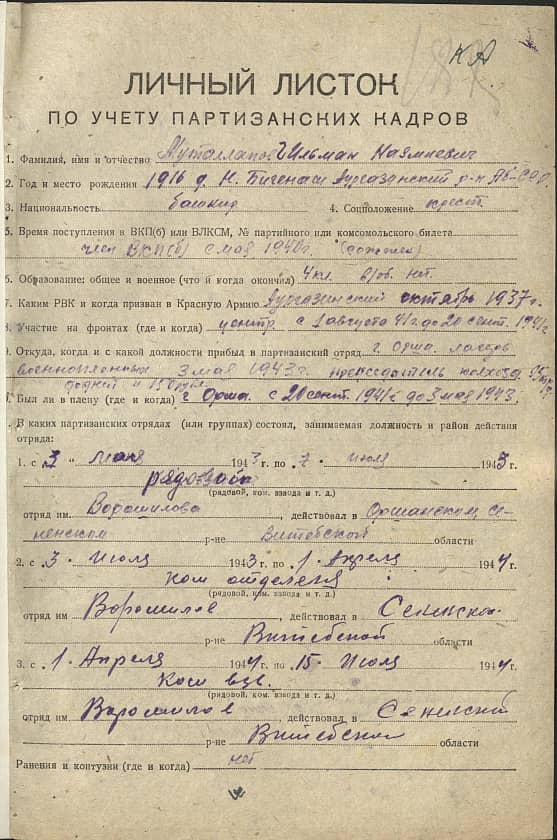 КА
ЛИЧНЫЙ ЛИСТОК
ПО УЧЕТУ ПАРТИЗАНСКИХ КАДРОВ
1. Фамилия, имя и отчество Муталлапов Ильман
2. Год и место рождения 1916 д. Н. Бигенаш Аургазинский р-н
3. Национальность башкир 4. Соцположение крест.
5. Время поступления в ВКП(б) или ВЛКСМ, № партийного или комсомольского билета
член ВКП(б) с мая 1940г.
6. Образование: общее и военное (что и когда окончил) 4кл. в/об. нет.
7. Каким РВК и когда призван в Красную Армию Аургазинский октябрь 1937г.
8. Участие на фронтах (где и когда) центр. с 1 августа 41г. до 20 сент. 1941г
9. Откуда, когда и с какой должности прибыл в партизанский отряд г. Орша. лагерь
военнопленных 3 мая 1943г. председатель колхоза
Был ли в плену (где и когда) г. Орша. с 20 сент. 1941г до 3 мая 1943.
В каких партизанских отрядах (или группах) состоял, занимаемая должность и район действия
отряда:
1. с 3 " мая 1943 г. по 2 . июля 1943
рядовой
(рядовой, ком. взвода и т. д.)
отряд им. Ворошилова, действовал в Оршанском Се-
ненском р-не Витебской области
2. с 3. Июля 1943 г. по 1. Апреля 1944 г.
Ком отделеня
(рядовой, ком. взвода и т. д.)
отряд им Ворошилов, действовал в
р-не Витебской области
3. с 1. Апреля 1944 г. по 15. Июля 1944 г.
Ком взв.
(рядовой, ком. взвода и т. д.)
отряд им. Ворошилов действовал в
р-не Витебской области
Ранения и контузии (где и когда) нет